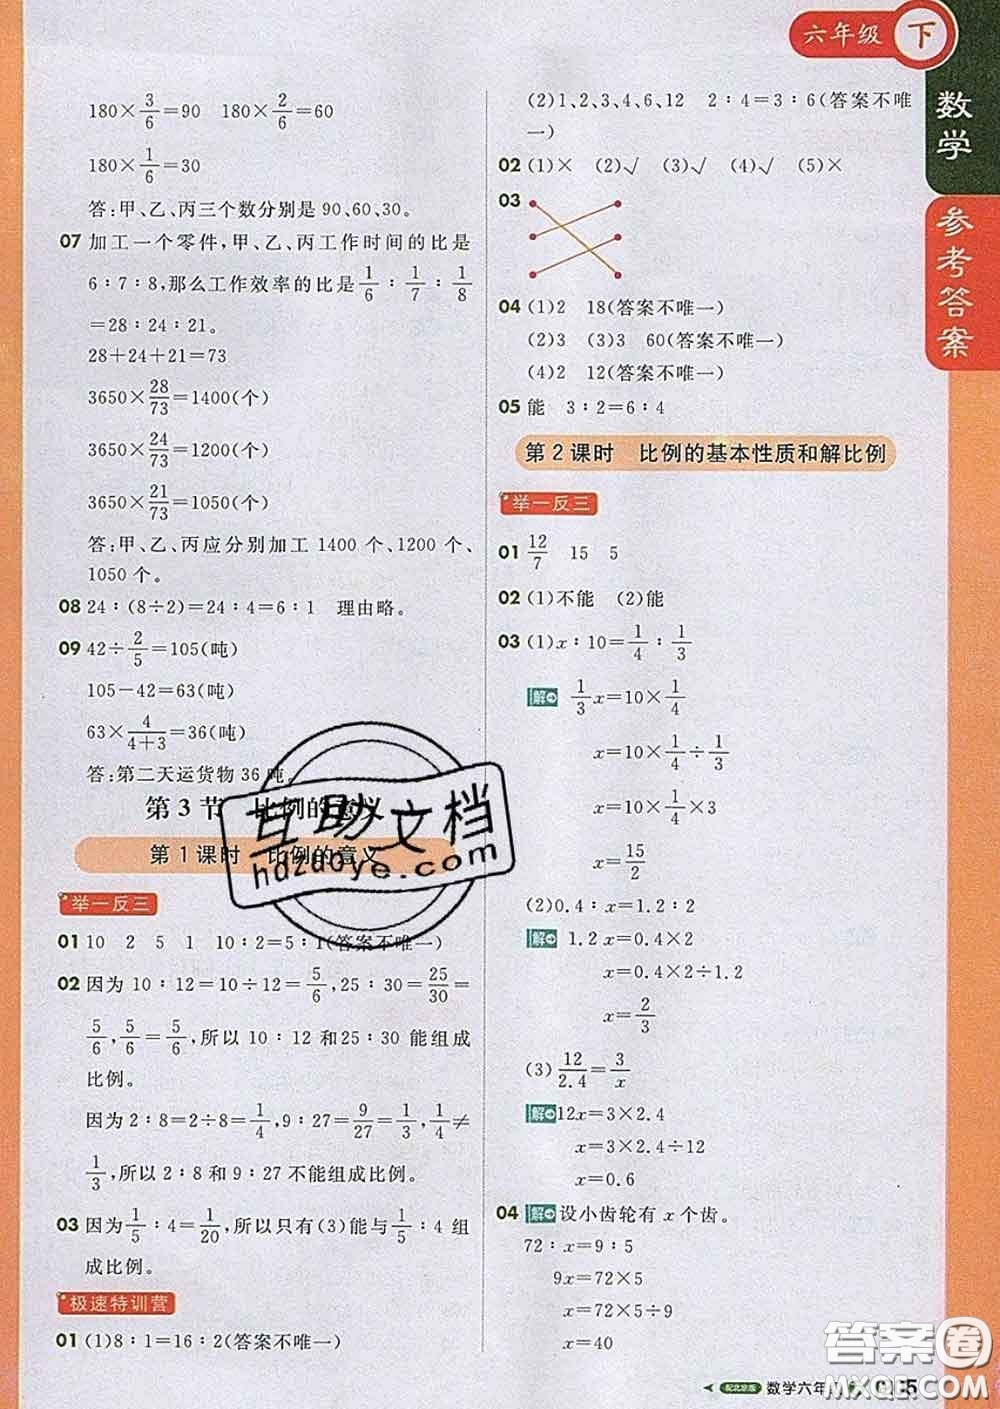 六年级 下
数学
参考答案
180×3/6=90 180×2/6=60
180×1/6=30
答:甲、乙、丙三个数分别是 90、60、30。
07 加工一个零件,甲、乙、丙工作时间的比是
6∶7∶8,那么工作效率的比是 1/6∶1/7∶1/8
=28∶24∶21。
28+24+21=73
3650×28/73=1400(个)
3650×24/73=1200(个)
3650×21/73=1050(个)
答:甲、乙、丙应分别加工 1400 个、1200 个、
1050 个。
08 24∶(8÷2)=24∶4=6∶1 理由略。
09 42÷2/5=105(吨)
105-42=63(吨)
63×4/(4+3)=36(吨)
答:第二天运货物 36 吨。
第 3 节 比例的意义
第 1 课时 比例的意义
举一反三
01 10 2 5 1 10∶2=5∶1(答案不唯一)
02 因为 10∶12=10÷12=5/6,25∶30=25/30=
5/6,5/6=5/6,所以 10∶12 和25∶30 能组成
比例。
因为 2∶8=2÷8=1/4,9∶27=9/27=1/3,1/4≠
1/3,所以 2∶8 和 9∶27 不能组成比例。
03 因为1/5∶4=1/20,所以只有(3)能与1/5∶4 组
成比例。
极速特训营
01 (1)8∶1=16∶2(答案不唯一)
(2)1、2、3、4、6、12 2∶4=3∶6(答案不唯
一)
02 (1)× (2)√ (3)√ (4)√ (5)×
03
04 (1)2 18(答案不唯一)
(2)3 (3)3 60(答案不唯一)
(4)2 12(答案不唯一)
05 能 3∶2=6∶4
第 2 课时 比例的基本性质和解比例
举一反三
01 12/7 15 5
02 (1)不能 (2)能
03 (1)x∶10=1/4∶1/3
解 1/3x=10×1/4
x=10×1/4÷1/3
x=10×1/4×3
x=15/2
(2)0.4∶x=1.2∶2
解 1.2x=0.4×2
x=0.4×2÷1.2
x=2/3
(3)12/2.4=3/x
解 12x=3×2.4
x=3×2.4÷12
x=0.6
04 解 设小齿轮有 x 个齿。
72∶x=9∶5
9x=72×5
x=72×5÷9
x=40
配北京版 数学六年
5
互助文档
hdzdoye.com
答案圈